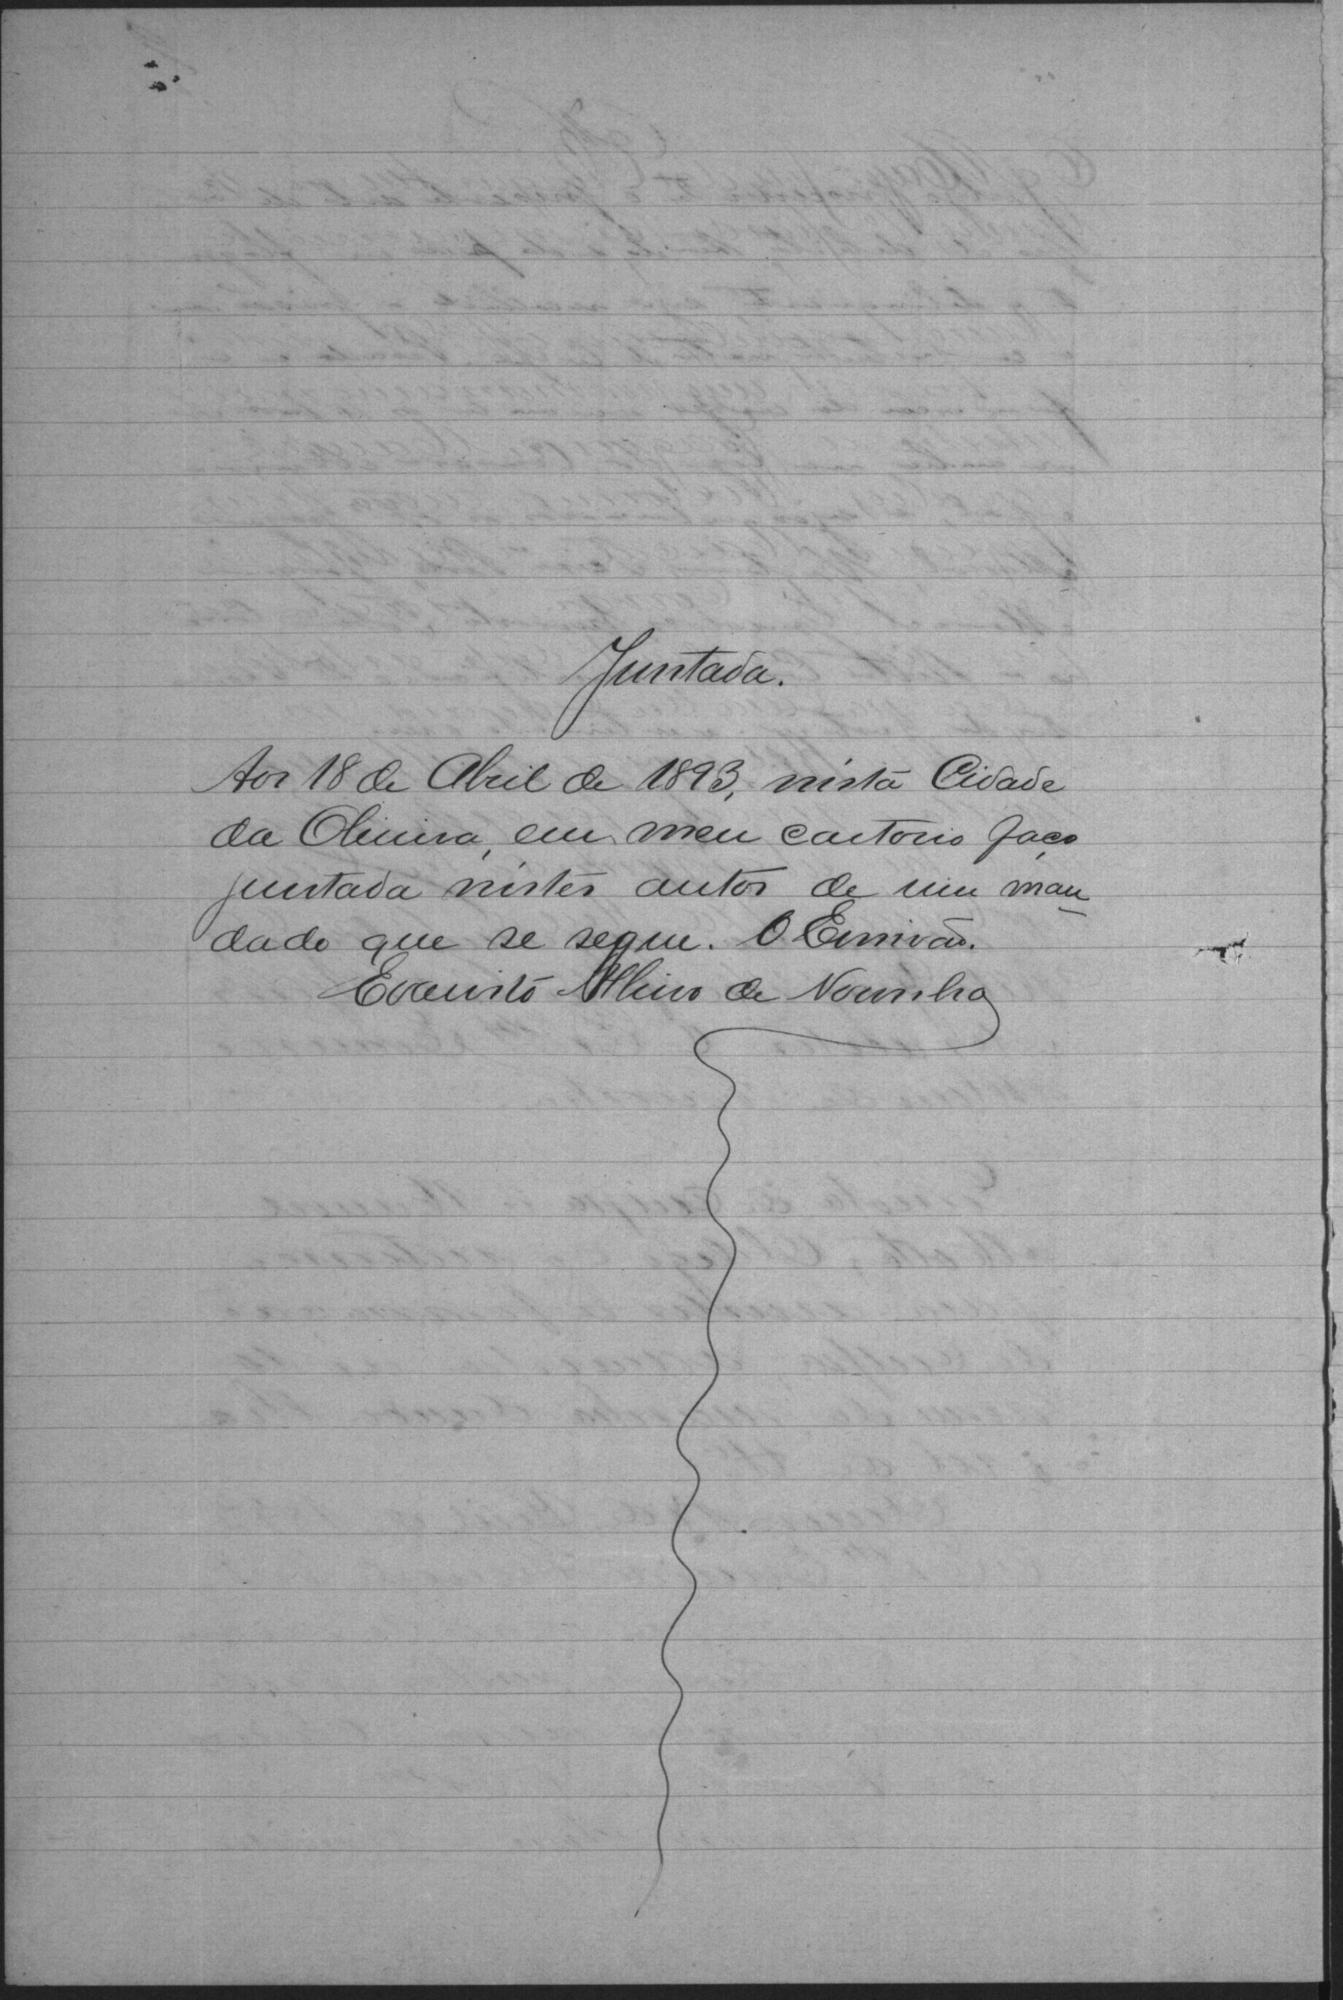 Juntada.
Aos 18 de Abril de 1893, nésta Cidade
da Oliveira, em meu cartorio faço
juntada néstes autos de um man
dado que se segue. O Escrivão.
de Noronha